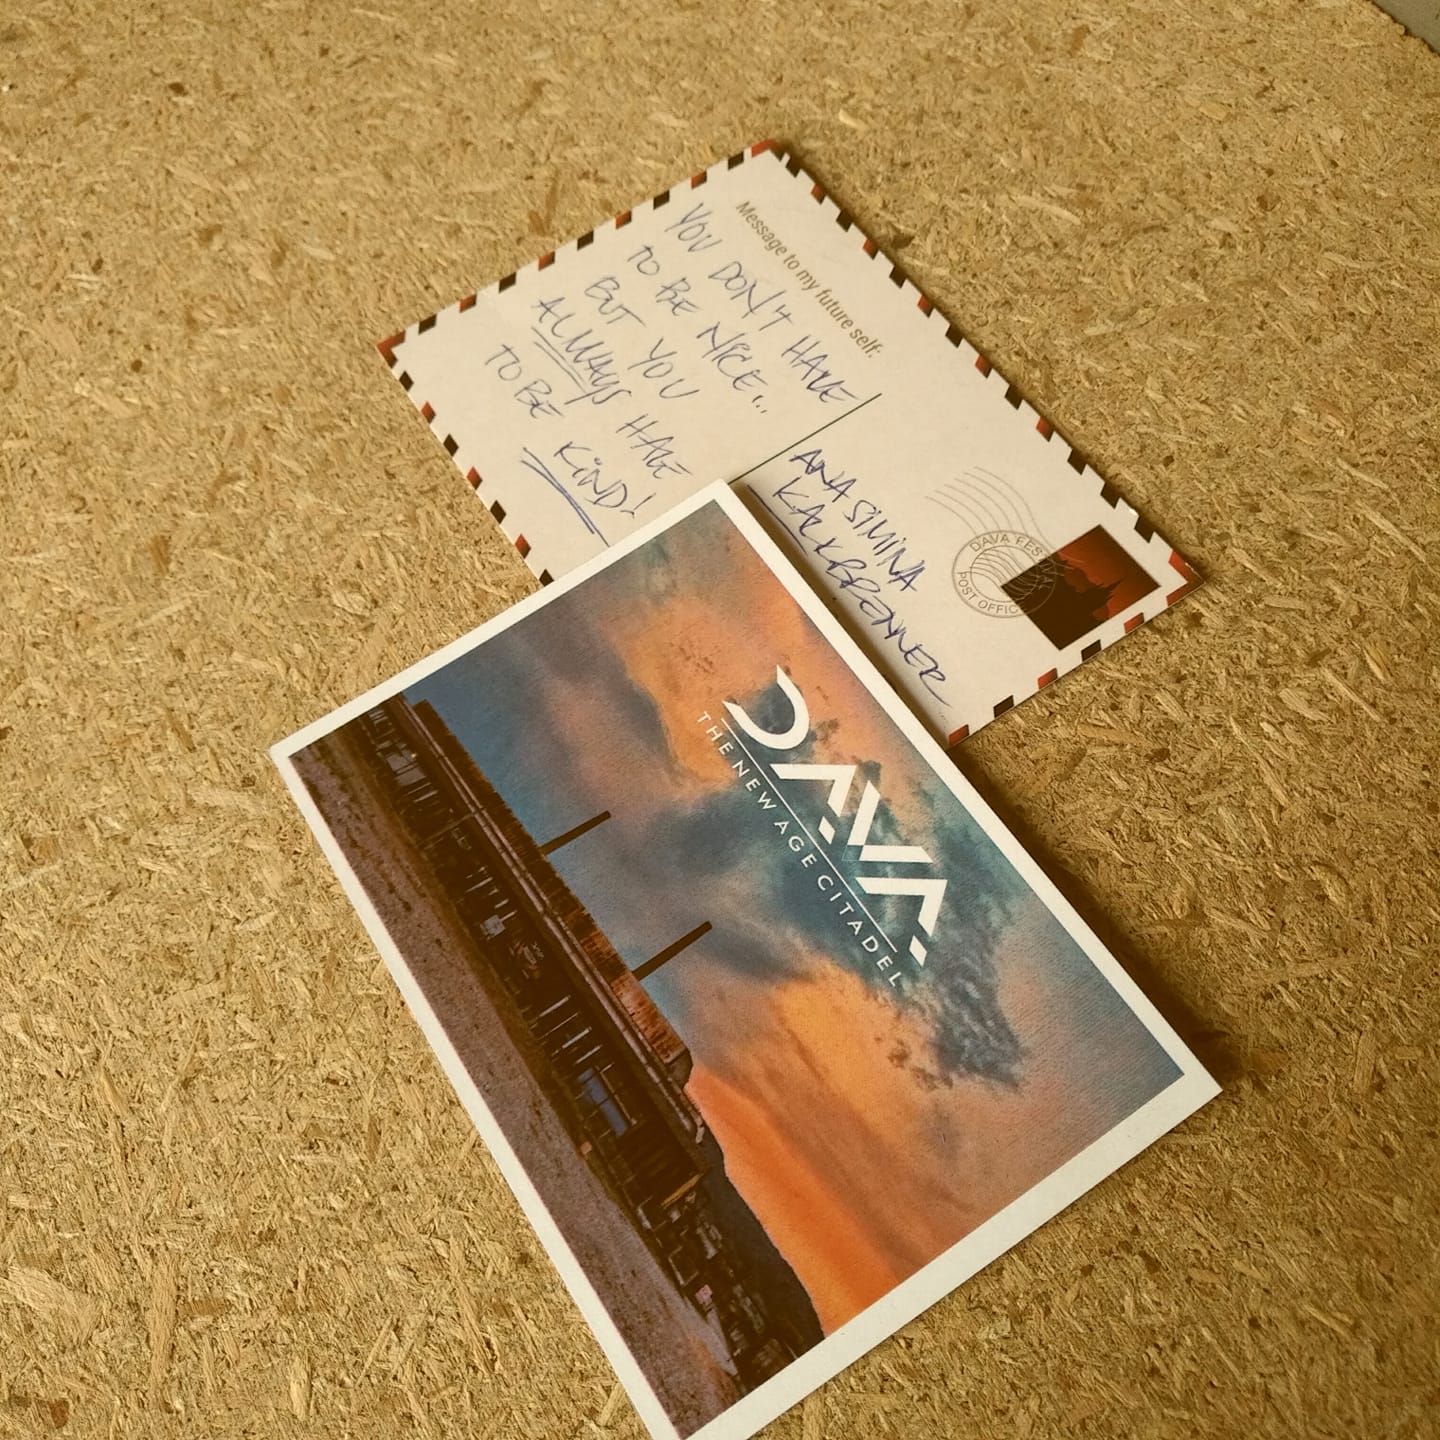 Message to my future self:
YOU DON'T HAVE
TO BE NICE...
BUT YOU
ALWAYS HAVE
TO BE KIND!
ANA SIMINA
KALKBRENNER
DAVA FES
POST OFFIC
DAVA.
THE NEW AGE CITADEL